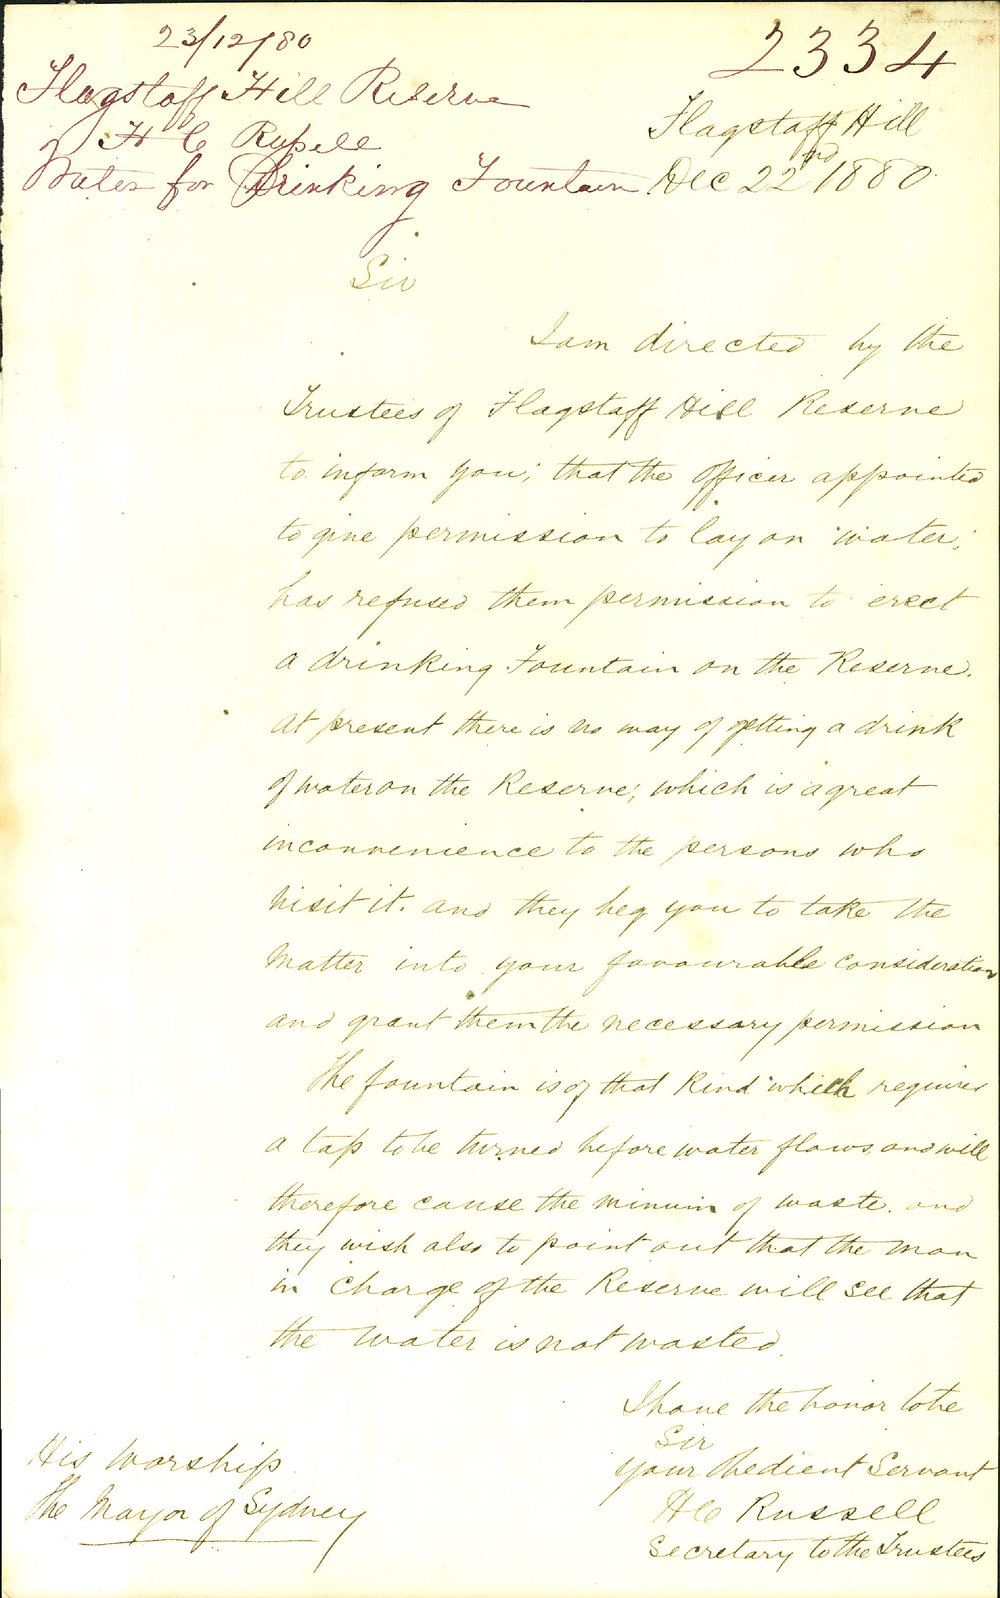 23/12/80
2334
Flagstaff Hill Reserve
H C Russell
Water for Drinking Fountain
Flagstaff Hill
Dec 22nd 1880
Sir
I am directed by the
Trustees of Flagstaff Hill Reserve
to inform you; that the Officer appointed
to give permission to lay on water;
has refused them permission to erect
a drinking Fountain on the Reserve.
At present there is no way of getting a drink
of water on the Reserve; which is a great
inconvenience to the persons who
visit it. and they beg you to take the
Matter into your favourable Consideration
and grant them the necessary permission
The fountain is of that Kind which requires
a tap to be turned before water flows, and will
therefore cause the minum of waste. and
they wish also to point out that the man
in Charge of the Reserve will see that
the Water is not wasted.
I have the honor to be
Sir
your Obedient Servant
H C Russell
Secretary to the Trustees
His Worship
The Mayor of Sydney